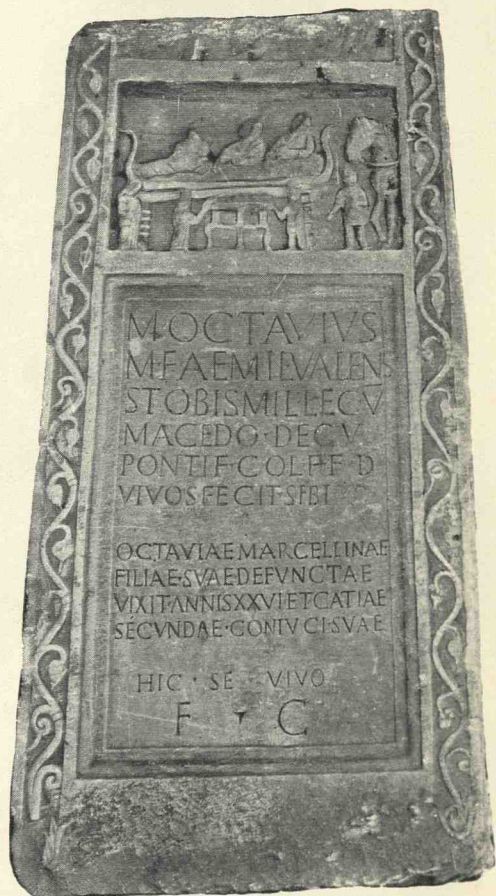 M·OCTAVIVS
M·F·AEMIL·VALENS
STOBIS·MIL·LEG·V
MACEDO·DECV
PONTIF·COL·F·F·D
VIVOS·FECIT·SIBI
OCTAVIAE MARCELLINAE
FILIAE·SVAE DEFVNCTAE
VIXIT·ANNIS XXVI ET CATIAE
SECVNDAE·CONIVGI·SVAE
HIC · SE · VIVO
F · C